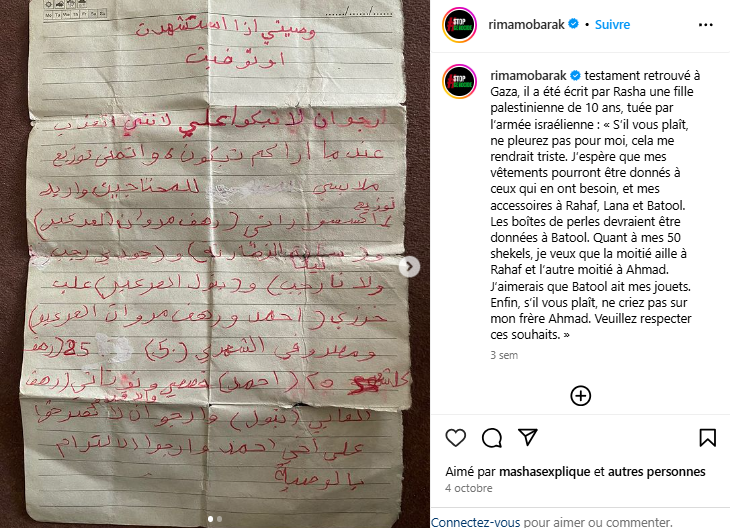 Mo Tu We Th Fr Sa Su
وصيتي إذا استشهدت
او توفيت
ارجو ان لا تبكوا علي لانني اتعذب
عندما اراكم تبكون و اتمنى توزيع
ملابسي للمحتاجين واريد
توزيع
اكسسواراتي (رهف مروان العرعير)
لينا
ولانا رجب) و(بتول العرعير) علب
خرزي (احمد ورهف مروان العرعير)
ومصروفي الشهري (50) 25 (رهف
٢٥ (احمد) قصصي ودفاتري (رهف
العابي (بتول) وارجو ان لا تصرخو
على أخي احمد وارجوا الالتزام
بالوصية
rimamobarak • Suivre
rimamobarak testament retrouvé à
Gaza, il a été écrit par Rasha une fille
palestinienne de 10 ans, tuée par
l’armée israélienne : « S’il vous plaît,
ne pleurez pas pour moi, cela me
rendrait triste. J’espère que mes
vêtements pourront être donnés à
ceux qui en ont besoin, et mes
accessoires à Rahaf, Lana et Batool.
Les boîtes de perles devraient être
données à Batool. Quant à mes 50
shekels, je veux que la moitié aille à
Rahaf et l’autre moitié à Ahmad.
J’aimerais que Batool ait mes jouets.
Enfin, s’il vous plaît, ne criez pas sur
mon frère Ahmad. Veuillez respecter
ces souhaits. »
3 sem
Aimé par mashasexplique et autres personnes
4 octobre
Connectez-vous pour aimer ou commenter.